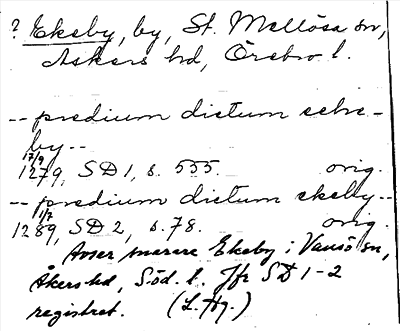 ? Ekeby, by, St. Mellösa sn,
Askers hd, Örebro l.
-- predium dictum eke-
by--
17/9
1279, SD 1, s. 555. orig.
-- predium dictum ekeby--
1/7
1289, SD 2, s. 78. orig.
Avser snarare Ekeby i Vansö sn,
Åkers hd, Söd. l. Jfr SD 1-2
registret. (L. Hg.)